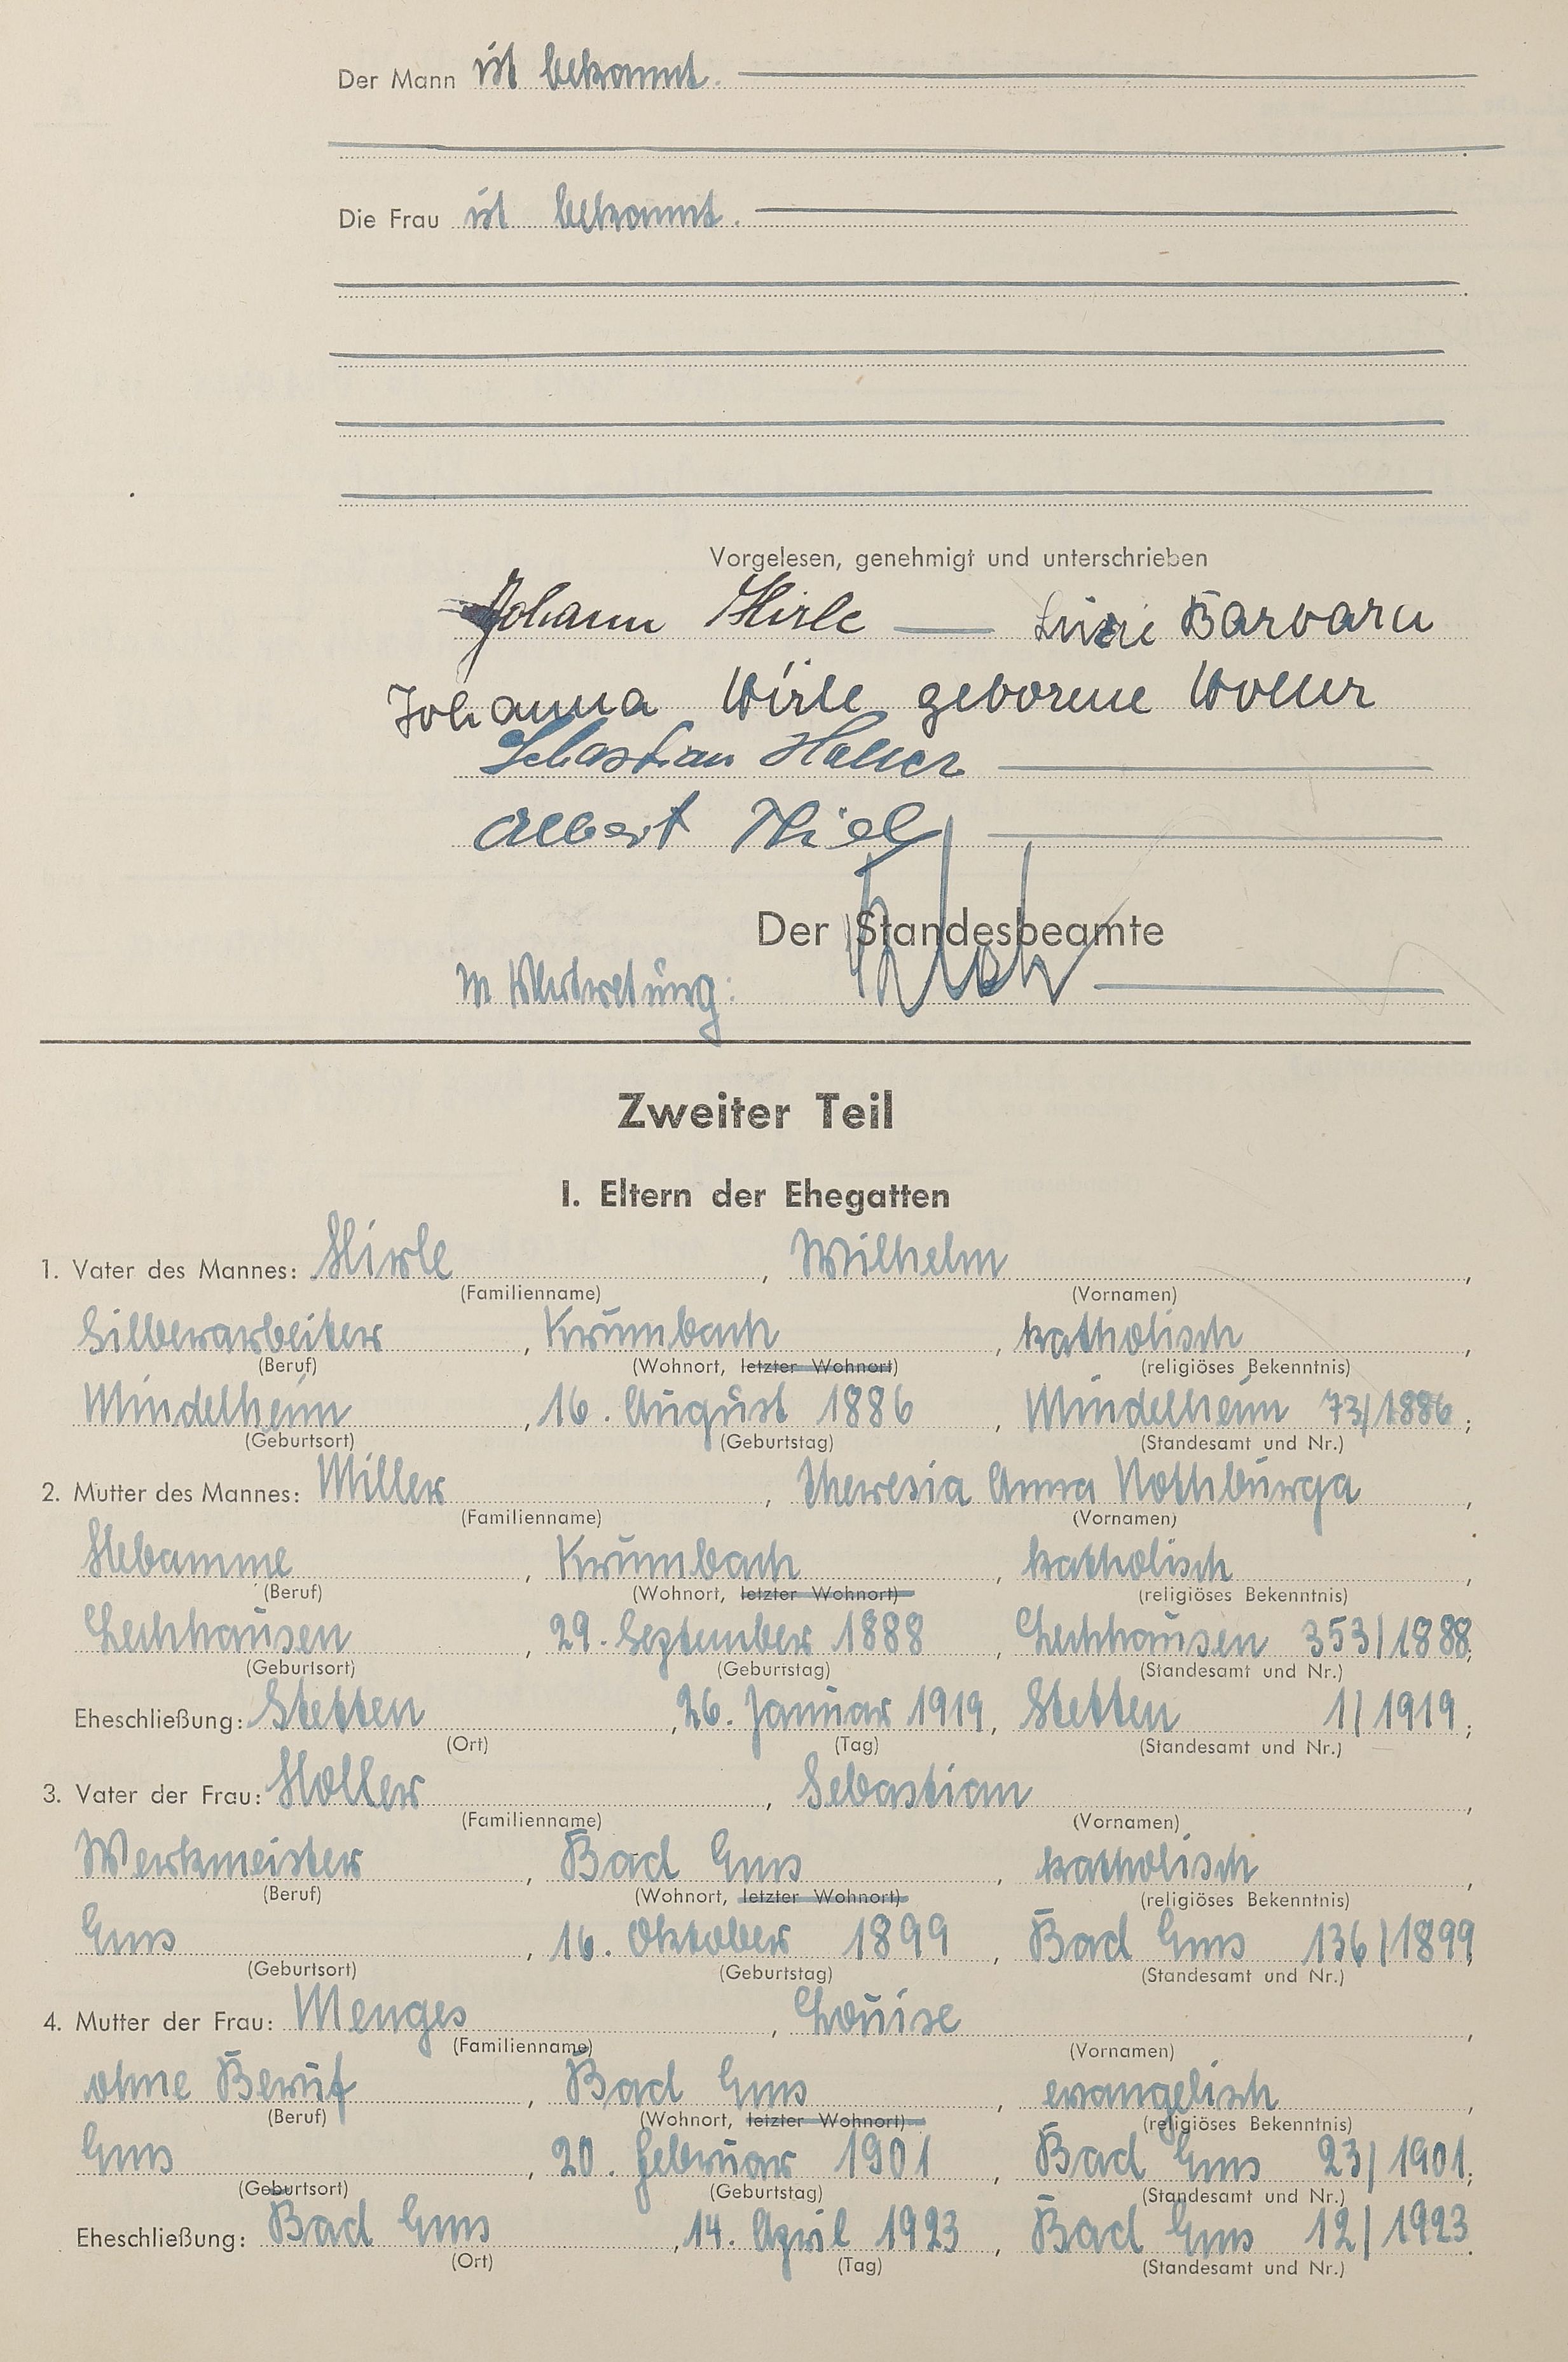 Der Mann ist bekannt.
Die Frau ist bekannt.
Vorgelesen, genehmigt und unterschrieben
Johann Hirle — Barbara
Johanna Hirle geborene Holler
Sebastian Holler
Albert Thiel
Der Standesbeamte
In Vertretung:
Zweiter Teil
I. Eltern der Ehegatten
1. Vater des Mannes: Hirle, Wilhelm,
(Familienname) (Vornamen)
Silberarbeiter, Krumbach, katholisch,
(Beruf) (Wohnort, letzter Wohnort) (religiöses Bekenntnis)
Mindelheim, 16. August 1886, Mindelheim 73/1886;
(Geburtsort) (Geburtstag) (Standesamt und Nr.)
2. Mutter des Mannes: Miller, Theresia Anna Nothburga,
(Familienname) (Vornamen)
Hebamme, Krumbach, katholisch,
(Beruf) (Wohnort, letzter Wohnort) (religiöses Bekenntnis)
Lechhausen, 29. September 1888, Lechhausen 353/1888;
(Geburtsort) (Geburtstag) (Standesamt und Nr.)
Eheschließung: Stetten, 26. Januar 1919, Stetten 1/1919;
(Ort) (Tag) (Standesamt und Nr.)
3. Vater der Frau: Holler, Sebastian,
(Familienname) (Vornamen)
Werkmeister, Bad Ems, katholisch,
(Beruf) (Wohnort, letzter Wohnort) (religiöses Bekenntnis)
Ems, 16. Oktober 1899, Bad Ems 136/1899;
(Geburtsort) (Geburtstag) (Standesamt und Nr.)
4. Mutter der Frau: Menges, Louise,
(Familienname) (Vornamen)
ohne Beruf, Bad Ems, evangelisch,
(Beruf) (Wohnort, letzter Wohnort) (religiöses Bekenntnis)
Ems, 20. Februar 1901, Bad Ems 23/1901;
(Geburtsort) (Geburtstag) (Standesamt und Nr.)
Eheschließung: Bad Ems, 14. April 1923, Bad Ems 12/1923.
(Ort) (Tag) (Standesamt und Nr.)